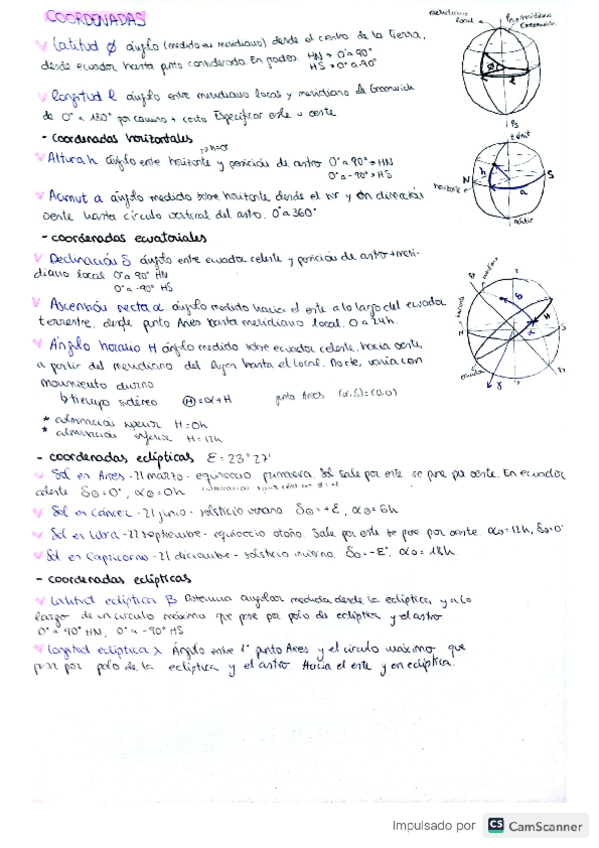 COORDENADAS
Latitud ø ángulo (medido en meridiano) desde el centro de la Tierra,
desde ecuador hasta punto considerado. En grados. HN → 0° a 90°
HS → 0° a -90°
longitud l ángulo entre meridiano local y meridiano de Greenwich
de 0° a 180° por camino + corto Especificar este u oeste
- coordenadas horizontales
Altura h ángulo entre horizonte y posición de astro 0° a 90° → HN
0° a -90° → HS
Acimut a ángulo medido sobre horizonte desde el sur y en dirección
oeste hasta círculo vertical del astro. 0° a 360°
- coordenadas ecuatoriales
Declinación δ ángulo entre ecuador celeste y posición de astro → meri-
diano local. 0° a 90° HN
0° a -90° HS
Ascensión recta α ángulo medido hacia el este a lo largo del ecuador
terrestre, desde punto Aries hasta meridiano local. 0 a 24h.
Ángulo horario H ángulo medido sobre ecuador celeste, hacia oeste,
a partir del meridiano del lugar hasta el local. No cte, varía con
movimiento diurno
↳ tiempo sidéreo Ⓗ = α + H punto Aries (α, δ) = (0,0)
* culminación superior H = 0h
* culminación inferior H = 12h
- coordenadas eclípticas ε = 23° 27'
Sol en Aries - 21 marzo - equinoccio primavera. Sol sale por este se pone por oeste. En ecuador
celeste δ⊙ = 0°, α⊙ = 0h
Sol en Cáncer - 21 junio - solsticio verano δ⊙ = +ε, α⊙ = 6h
Sol en Libra - 22 septiembre - equinoccio otoño. Sale por este se pone por oeste. α⊙ = 12h, δ⊙ = 0°
Sol en Capricornio - 21 diciembre - solsticio invierno. δ⊙ = -ε, α⊙ = 18h.
- coordenadas eclípticas
Latitud eclíptica β Distancia angular medida desde la eclíptica, y a lo
largo de un círculo máximo que pase por polo de eclíptica y el astro
0° a 90° HN, 0° a -90° HS
Longitud eclíptica λ Ángulo entre 1° punto Aries y el círculo máximo que
pasa por polo de la eclíptica y el astro Hacia el este y en eclíptica.
meridiano
local
Pn
meridiano
Greenwich
Ps
zénit
N
S
horizonte
h
a
nadir
Impulsado por CS CamScanner